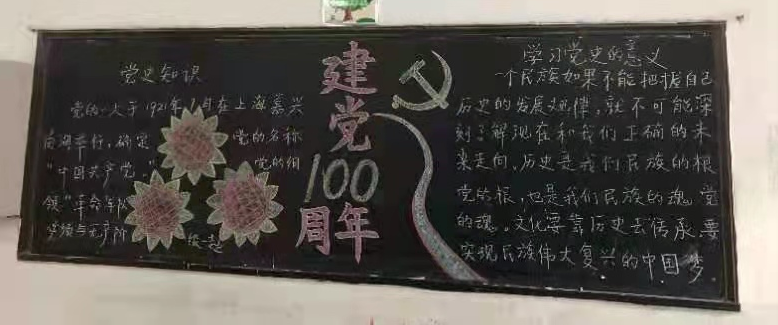 党史知识
党的一大于1921年7月在上海嘉兴
南湖举行,确定 党的名称
"中国共产党。" 党的纲
领"革命军队
必须与无产阶 级一起
建党
100
周年
学习党史的意义
一个民族如果不能把握自己
历史的发展规律,就不可能深
刻了解现在和我们正确的未
来走向,历史是我们民族的根
党的根,也是我们民族的魂,党
的魂。文化要靠历史去传承,要
实现民族伟大复兴的中国梦.